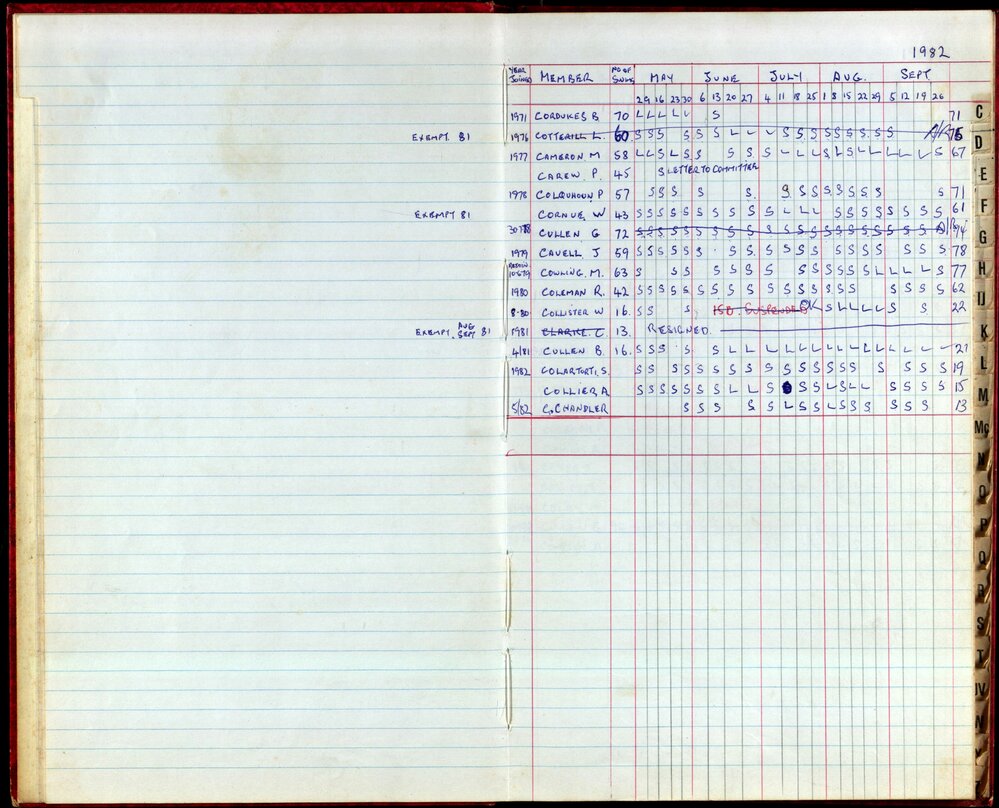 1982
YEAR JOINED MEMBER NO OF SWIMS MAY JUNE JULY AUG. SEPT
2 9 16 23 30 6 13 20 27 4 11 18 25 1 8 15 22 29 5 12 19 26
1971 CORDUKES B 70 L L L L L S 71
EXEMPT 81 1976 COTTERILL L. 60 S S S S S S L L L S S S S S S S S S 75
1977 CAMERON M 58 L L S L S S S S S L L L S L S L L L L L S 67
CAREW P. 45 S LETTER TO COMMITTEE
1978 COLQUHOUN P 57 S S S S S S S S S S S S S S 71
EXEMPT 81 CORNUE W 43 S S S S S S S S S S L L L S S S S S S S S 61
30 7 78 CULLEN G 72 S S S S S S S S S S S S S S S S S S S S S 94
1979 CAVELL J 59 S S S S S S S S S S S S S S S S S S S S 78
REJOIN. 10 5 79 COWLING M. 63 S S S S S S S S S S S S S L L L L S 77
1980 COLEMAN R. 42 S S S S S S S S S S S S S S S S S S S S 62
8-80 COLLISTER W 16. S S 150. SUSPENDED OK S L L L L S S 22
EXEMPT AUG SEPT 81 1981 CLARKE C. 13. RESIGNED.
4/81 CULLEN B. 16. S S S S S L L L L L L L L L L L L L L L 27
1982 COLARTORTI S. S S S S S S S S S S S S S S S S S S S 19
COLLIER A S S S S S S S L L S S S L S L L S S S S 15
5/82 G. CHANDLER S S S S S L S S L S S S S S S 13
C
D
E
F
G
H
IJ
K
L
M
Mc
N
O
P
Q
R
S
T
UV
W